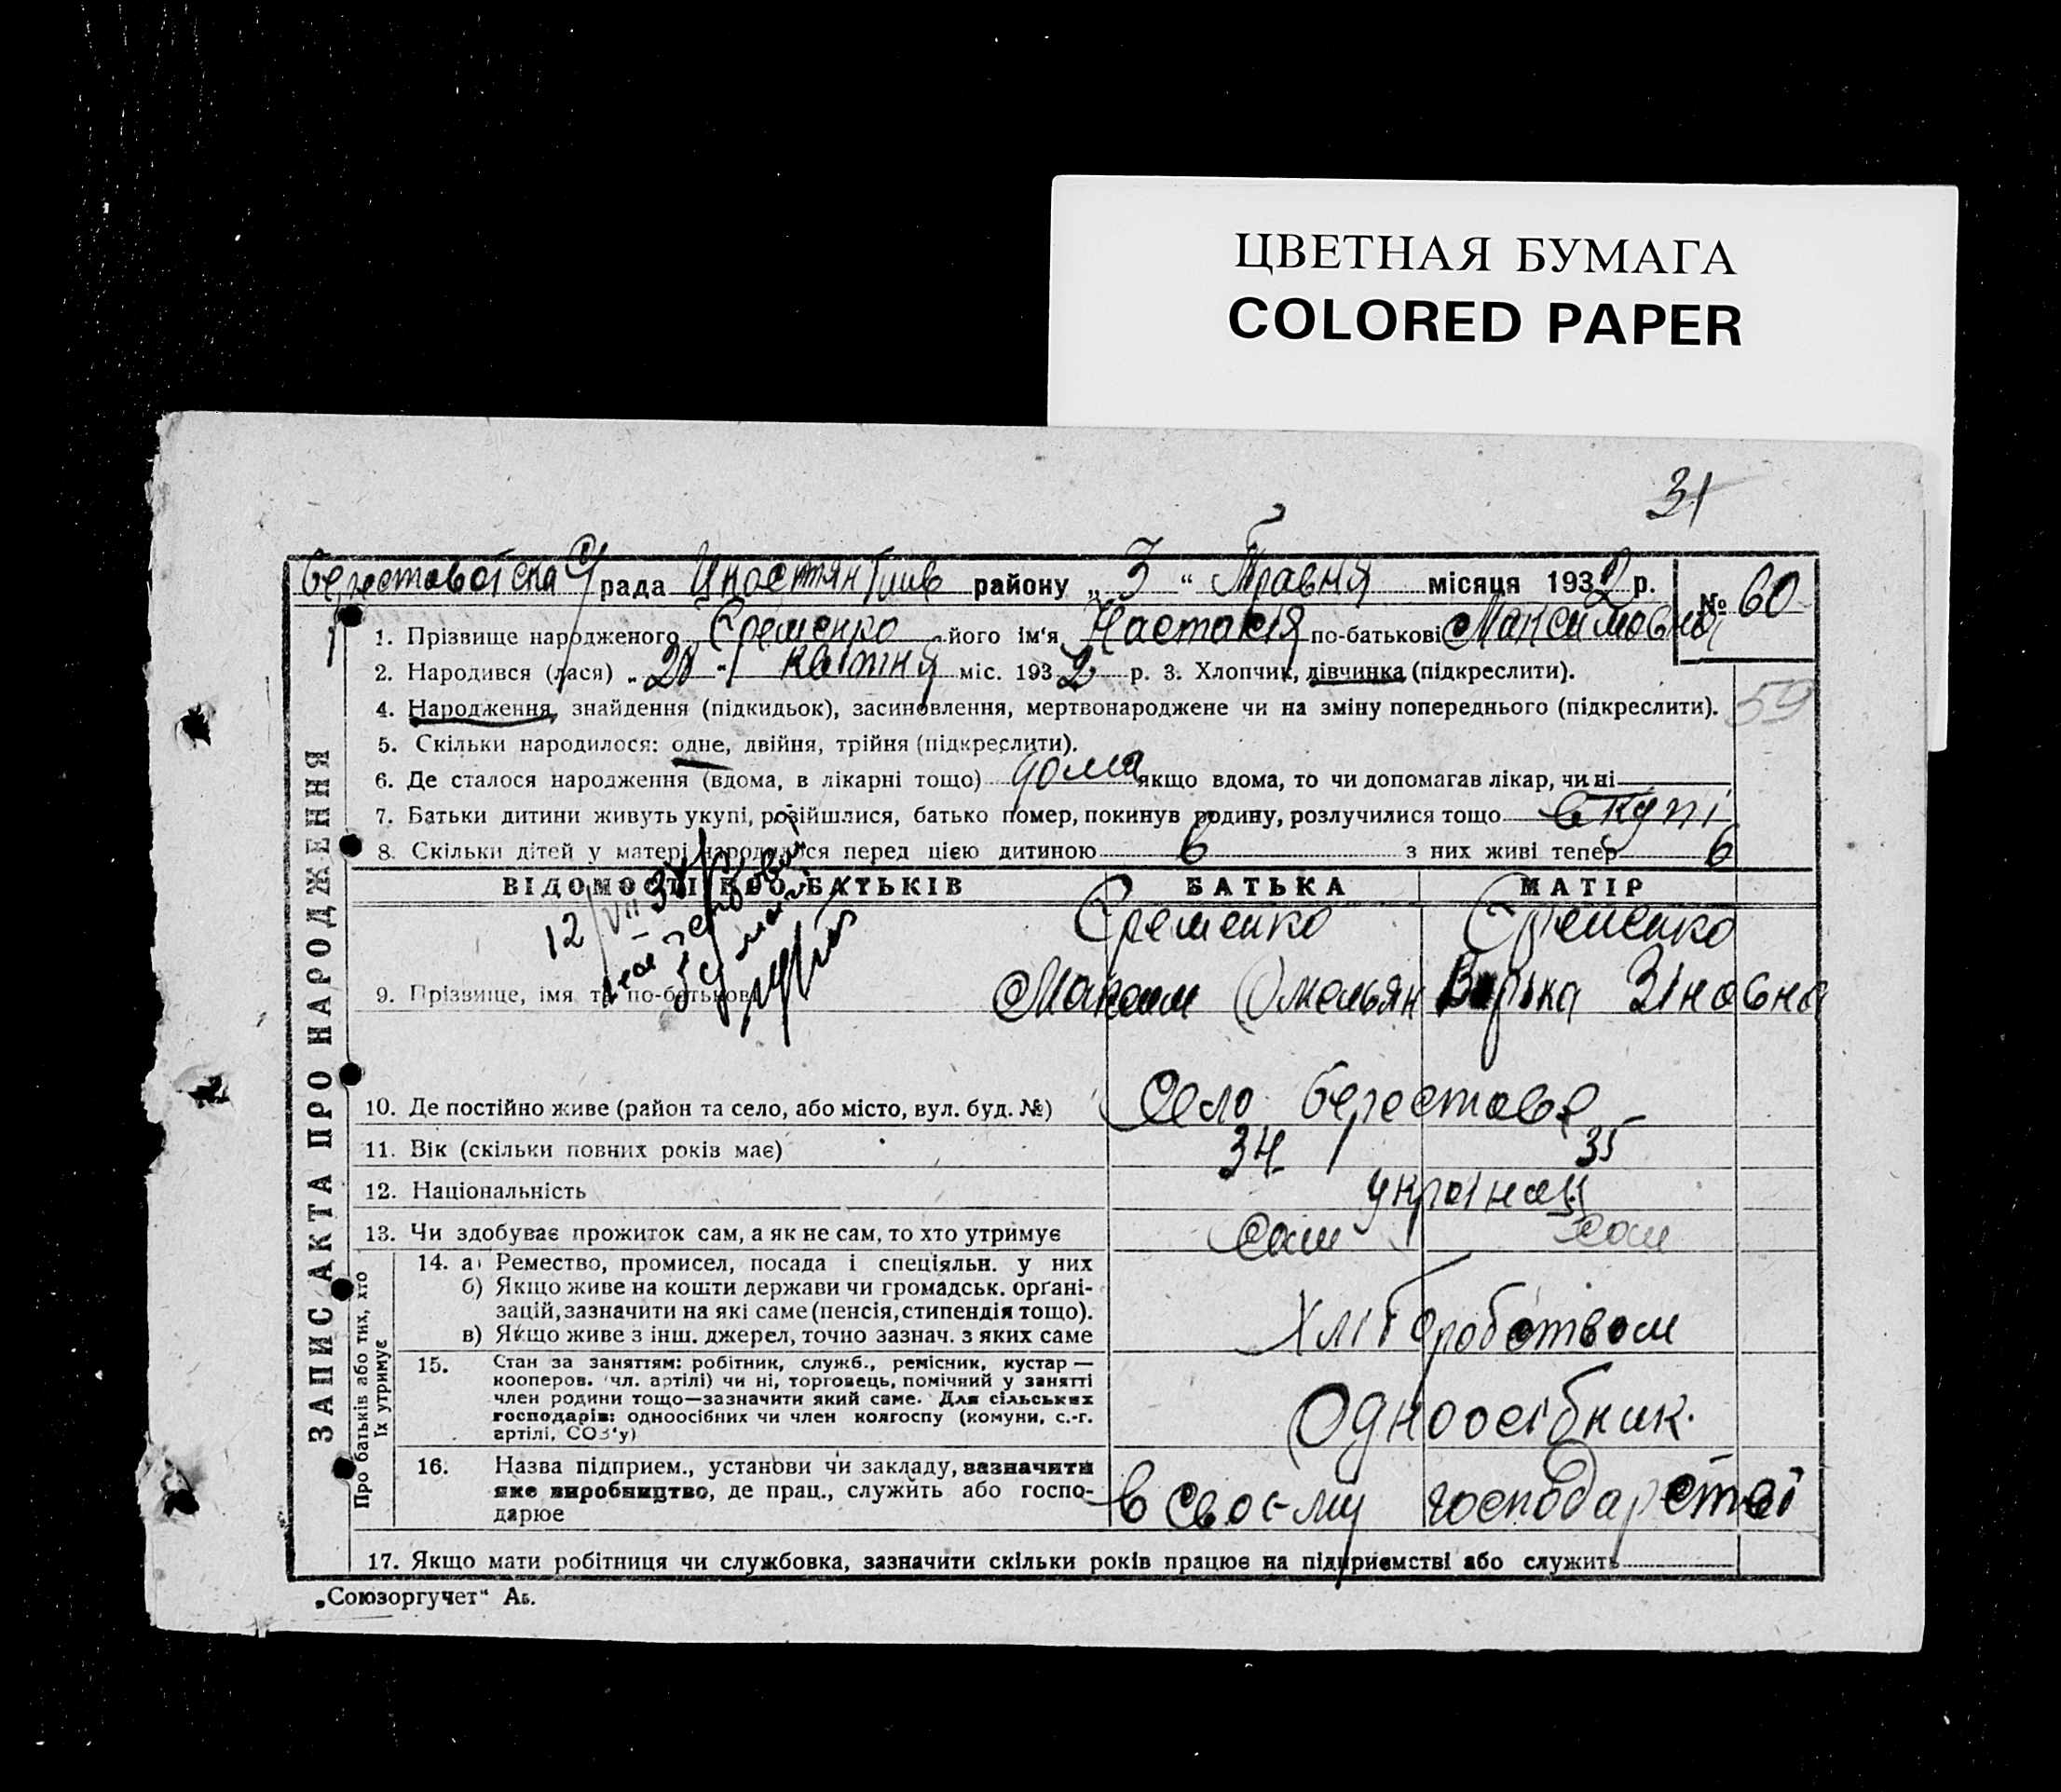 ЦВЕТНАЯ БУМАГА
COLORED PAPER
31
Берестовоїська с/рада району „3“ Травня місяця 1932 р. № 60
1. Прізвище народженого Єременко його ім'я Настасія по-батькові Максимовна
2. Народився (лася) „20“ квітня міс. 1932 р. 3. Хлопчик, дівчинка (підкреслити).
4. Народження, знайдення (підкидьок), засиновлення, мертвонароджене чи на зміну попереднього (підкреслити). 59
5. Скільки народилося: одне, двійня, трійня (підкреслити).
6. Де сталося народження (вдома, в лікарні тощо) дома якщо вдома, то чи допомагав лікар, чи ні
7. Батьки дитини живуть укупі, розійшлися, батько помер, покинув родину, розлучилися тощо вкупі
8. Скільки дітей у матері народилося перед цією дитиною 6 з них живі тепер 6
ВІДОМОСТІ ПРО БАТЬКІВ БАТЬКА МАТІР
12/VII 32
Єременко Єременко
9. Прізвище, імя та по-батькові Максим Омельян Варька Зіновна
10. Де постійно живе (район та село, або місто, вул. буд. №) Село Берестове
11. Вік (скільки повних років має) 34 35
12. Національність українці
13. Чи здобуває прожиток сам, а як не сам, то хто утримує сам сам
14. а) Ремество, промисел, посада і спеціяльн. у них
б) Якщо живе на кошти держави чи громадськ. орґані-
зацій, зазначити на які саме (пенсія, стипендія тощо).
в) Якщо живе з інш. джерел, точно зазнач. з яких саме
Хліборобством
15. Стан за заняттям: робітник, служб., ремісник, кустар —
кооперов. (чл. артілі) чи ні, торговець, помічний у занятті
член родини тощо—зазначити який саме. Для сільських
господарів: одноосібних чи член колгоспу (комуни, с.-г.
артілі, СОЗ'у)
Одноосібник.
16. Назва підприєм., установи чи закладу, зазначити
яке виробництво, де прац., служить або госпо-
дарює
в своє-му господарстві
17. Якщо мати робітниця чи службовка, зазначити скільки років працює на підприємстві або служить
„Союзоргучет“ Аб.
ЗАПИС АКТА ПРО НАРОДЖЕННЯ
Про батьків або тих, хто
їх утримує